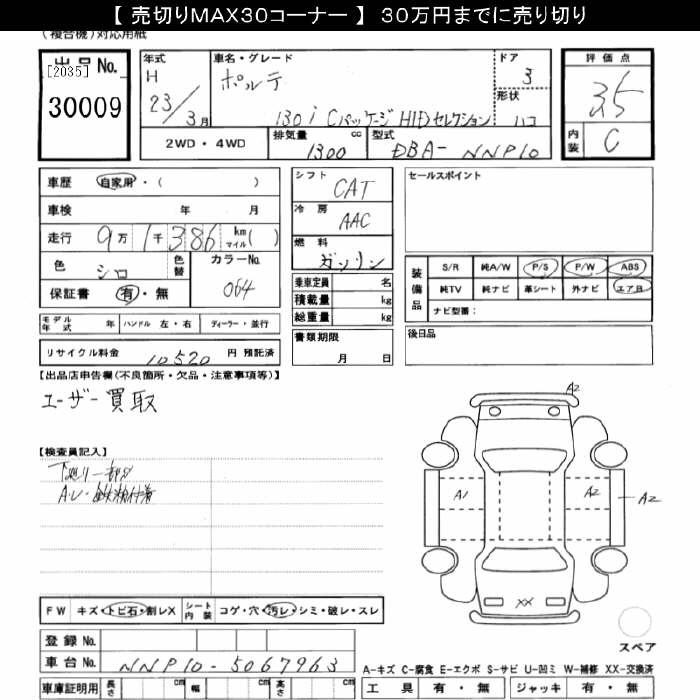 【 売切りMAX30コーナー 】 30万円までに売り切り
(複合機)対応用紙
出品No.
[2035]
30009
年式
H
23/3月
車名・グレード
ポルテ
130i Cパッケージ HIDセレクション
ドア
3
形状
ハコ
2WD・4WD
排気量
1300 cc
型式
DBA-NNP10
評価点
3.5
内装
C
車歴
自家用・( )
車検 年 月
走行 9万1千386 km マイル( )
色 シロ
色替
カラーNo.
064
保証書 有・無
モデル年式 年
ハンドル 左・右
ディーラー・並行
リサイクル料金 10520 円 預託済
シフト
CAT
冷房
AAC
燃料
ガソリン
乗車定員 名
積載量 kg
総重量 kg
書類期限
月 日
セールスポイント
装備品
S/R 純A/W P/S P/W ABS
純TV 純ナビ 革シート 外ナビ エアB
ナビ型番：
後日品
【出品店申告欄(不良箇所・欠品・注意事項等)】
ユーザー買取
【検査員記入】
A2
A1
A2
A2
XX
スペア
FW キズ・トビ石・割レX
シート内装 コゲ・穴・汚レ・シミ・破レ・スレ
登録No.
車台No. NNP10-5067963
車庫証明用 長さ cm 幅 cm 高さ cm
A-キズ C-腐食 E-エクボ S-サビ U-凹ミ W-補修 XX-交換済
工具 有・無 ジャッキ 有・無